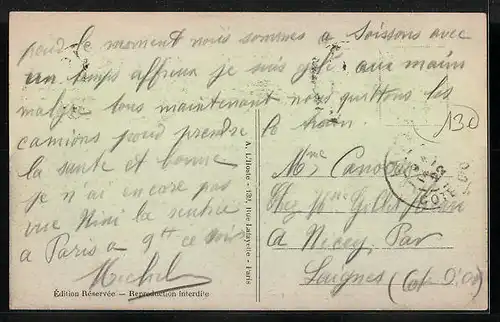 pour le moment nous sommes a Soissons avec
un temps affreux je suis gelé aux mains
malgre tous maintenant nous quittons les
camions pour prendre le train
la sante et bonne
je n'ai encore pas
vue Nini la rentre
a Paris a 9h ce soir
Michel
Mme
Chez Mme
a Nicey, Par
Laignes (Cote D'Or)
130
A. L'Hoste - 132, Rue Lafayette - Paris
Édition Réservée — Reproduction interdite